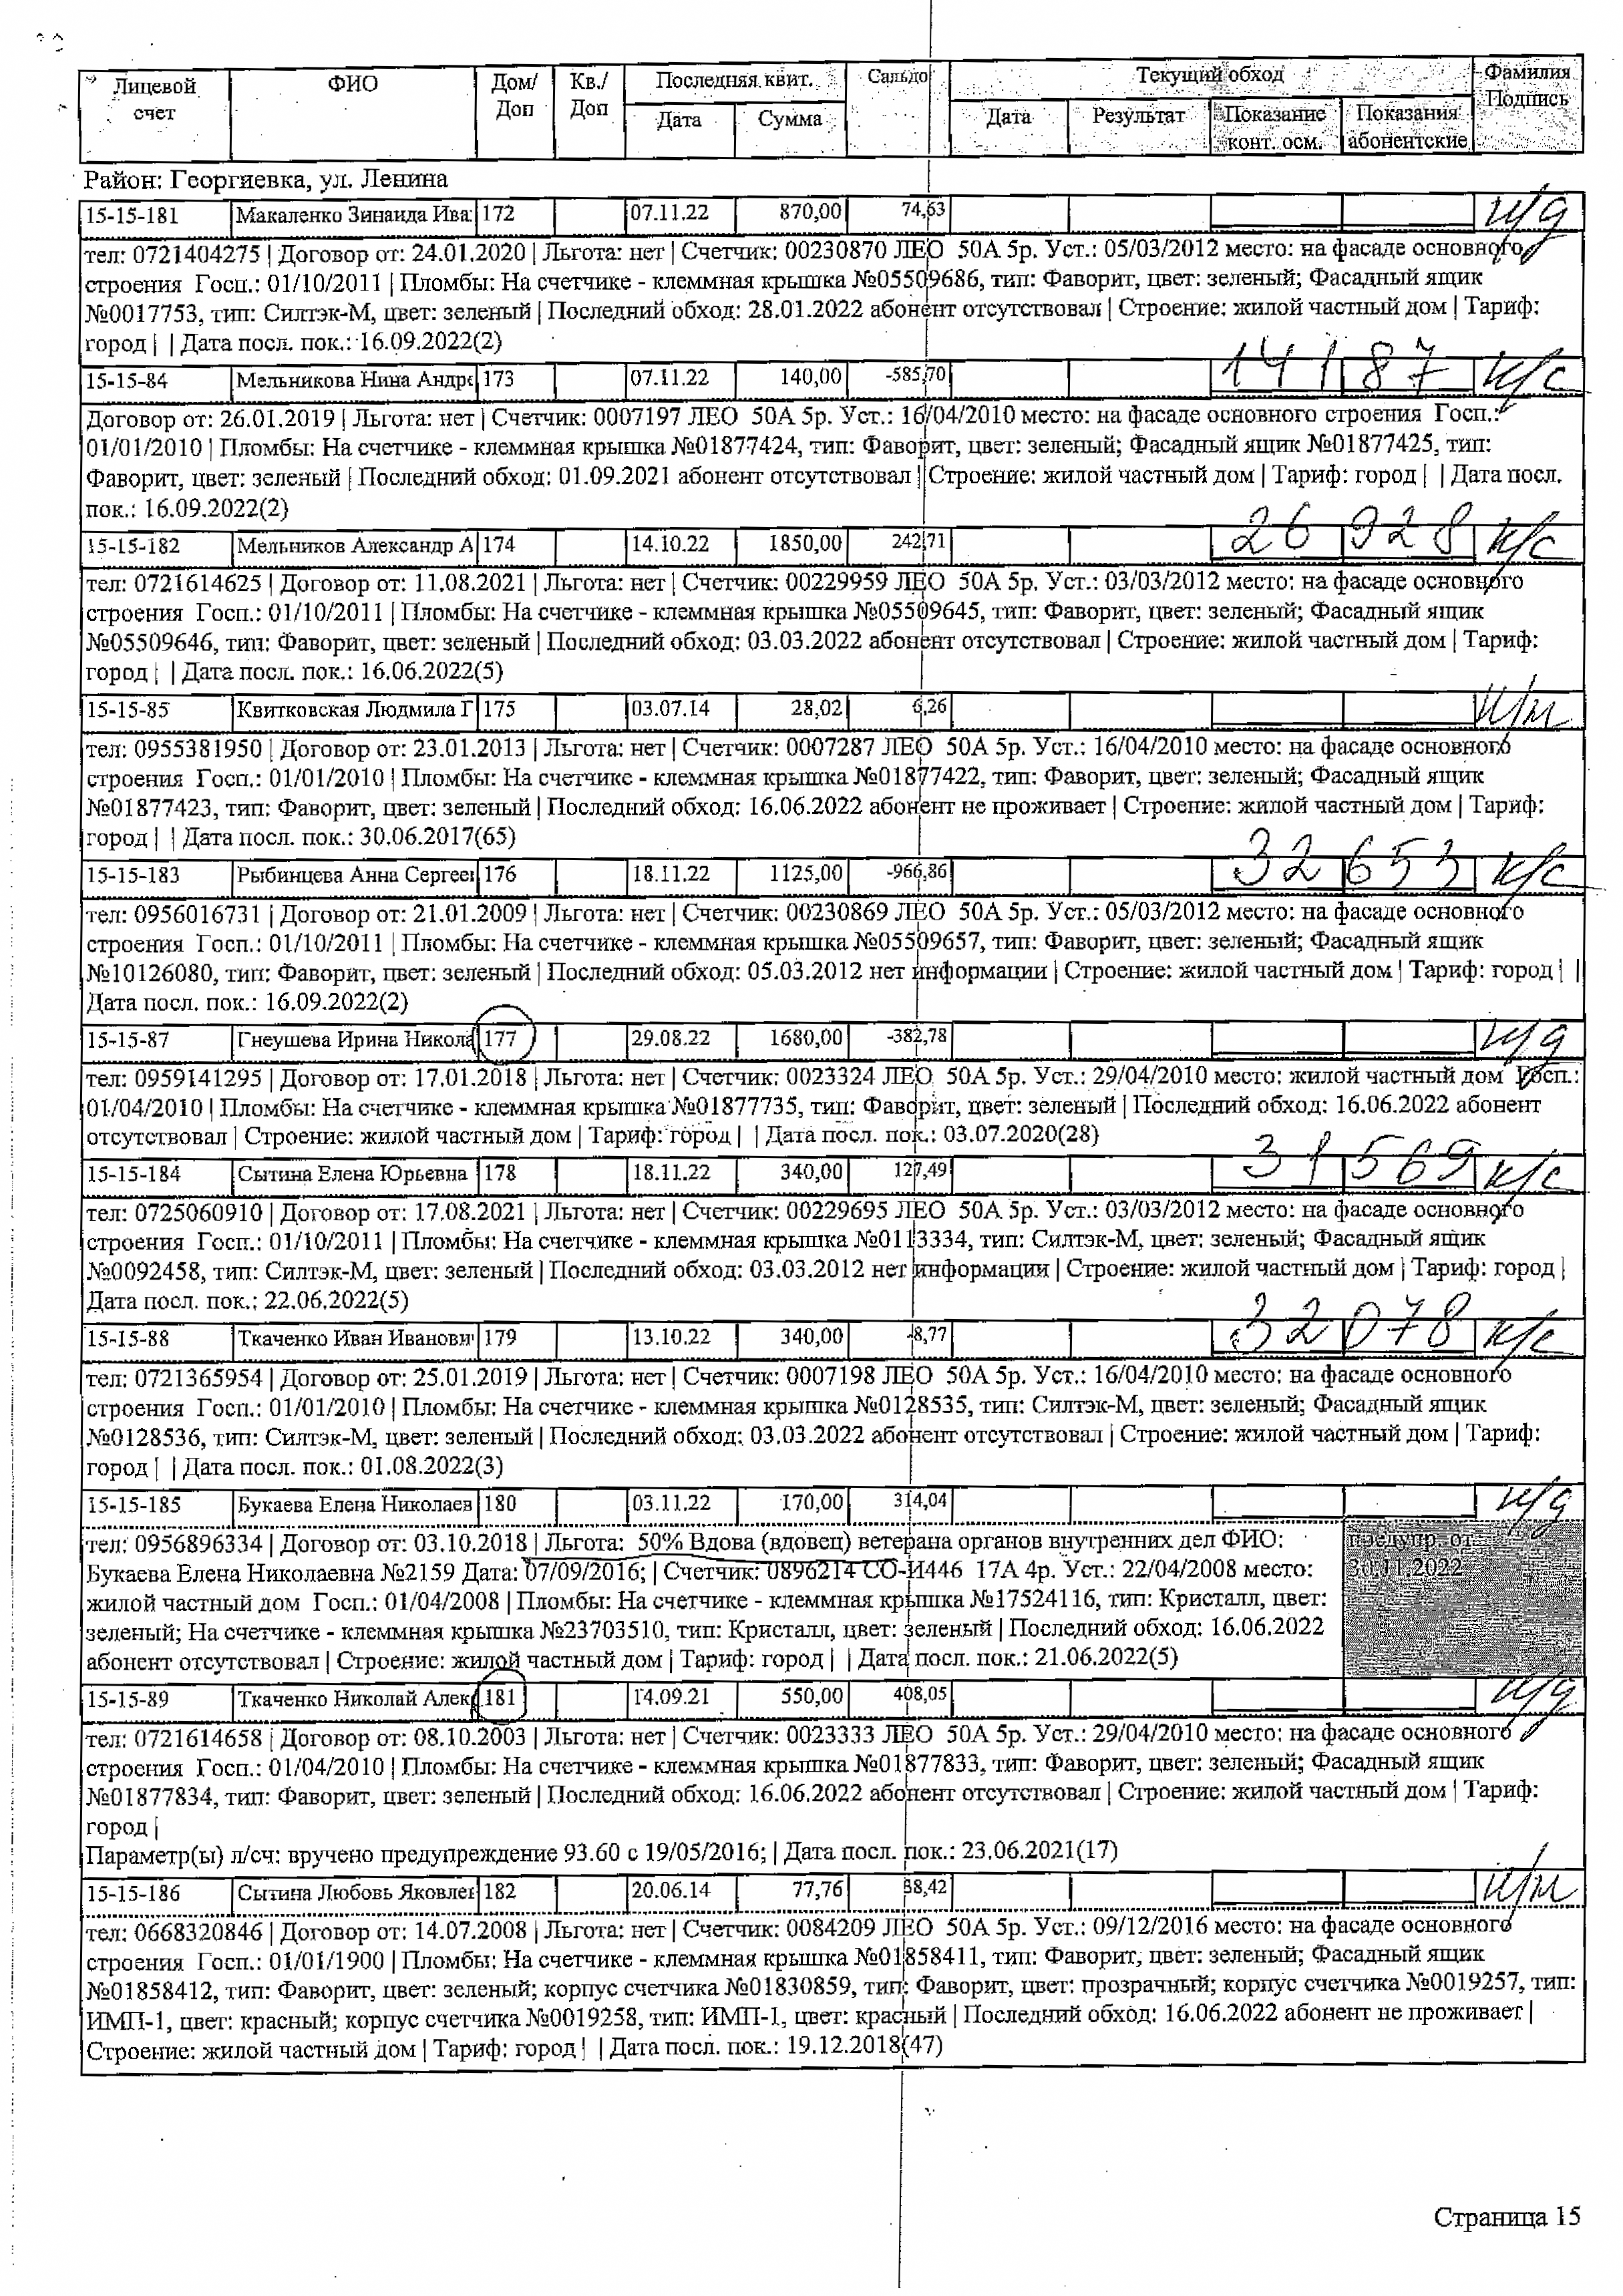 Лицевой счет | ФИО | Дом/ Доп | Кв./ Доп | Последняя квит. | Сальдо | Текущий обход | Фамилия Подпись
Дата | Сумма | Дата | Результат | Показание конт. осм. | Показания абонентские
Район: Георгиевка, ул. Ленина
15-15-181 Макаленко Зинаида Ива 172 07.11.22 870,00 74,63 н/д
тел: 0721404275 | Договор от: 24.01.2020 | Льгота: нет | Счетчик: 00230870 ЛЕО 50А 5р. Уст.: 05/03/2012 место: на фасаде основного
строения Госп.: 01/10/2011 | Пломбы: На счетчике - клеммная крышка №05509686, тип: Фаворит, цвет: зеленый; Фасадный ящик
№0017753, тип: Силтэк-М, цвет: зеленый | Последний обход: 28.01.2022 абонент отсутствовал | Строение: жилой частный дом | Тариф:
город | | Дата посл. пок.: 16.09.2022(2)
15-15-84 Мельникова Нина Андре 173 07.11.22 140,00 -585,70 14187 к/с
Договор от: 26.01.2019 | Льгота: нет | Счетчик: 0007197 ЛЕО 50А 5р. Уст.: 16/04/2010 место: на фасаде основного строения Госп.:
01/01/2010 | Пломбы: На счетчике - клеммная крышка №01877424, тип: Фаворит, цвет: зеленый; Фасадный ящик №01877425, тип:
Фаворит, цвет: зеленый | Последний обход: 01.09.2021 абонент отсутствовал | Строение: жилой частный дом | Тариф: город | | Дата посл.
пок.: 16.09.2022(2)
15-15-182 Мельников Александр А 174 14.10.22 1850,00 242,71 26928 к/с
тел: 0721614625 | Договор от: 11.08.2021 | Льгота: нет | Счетчик: 00229959 ЛЕО 50А 5р. Уст.: 03/03/2012 место: на фасаде основного
строения Госп.: 01/10/2011 | Пломбы: На счетчике - клеммная крышка №05509645, тип: Фаворит, цвет: зеленый; Фасадный ящик
№05509646, тип: Фаворит, цвет: зеленый | Последний обход: 03.03.2022 абонент отсутствовал | Строение: жилой частный дом | Тариф:
город | | Дата посл. пок.: 16.06.2022(5)
15-15-85 Квитковская Людмила Г 175 03.07.14 28,02 6,26 н/ж
тел: 0955381950 | Договор от: 23.01.2013 | Льгота: нет | Счетчик: 0007287 ЛЕО 50А 5р. Уст.: 16/04/2010 место: на фасаде основного
строения Госп.: 01/01/2010 | Пломбы: На счетчике - клеммная крышка №01877422, тип: Фаворит, цвет: зеленый; Фасадный ящик
№01877423, тип: Фаворит, цвет: зеленый | Последний обход: 16.06.2022 абонент не проживает | Строение: жилой частный дом | Тариф:
город | | Дата посл. пок.: 30.06.2017(65)
15-15-183 Рыбинцева Анна Сергеев 176 18.11.22 1125,00 -966,86 32653 к/с
тел: 0956016731 | Договор от: 21.01.2009 | Льгота: нет | Счетчик: 00230869 ЛЕО 50А 5р. Уст.: 05/03/2012 место: на фасаде основного
строения Госп.: 01/10/2011 | Пломбы: На счетчике - клеммная крышка №05509657, тип: Фаворит, цвет: зеленый; Фасадный ящик
№10126080, тип: Фаворит, цвет: зеленый | Последний обход: 05.03.2012 нет информации | Строение: жилой частный дом | Тариф: город | |
Дата посл. пок.: 16.09.2022(2)
15-15-87 Гнеушева Ирина Никола 177 29.08.22 1680,00 -382,78 н/д
тел: 0959141295 | Договор от: 17.01.2018 | Льгота: нет | Счетчик: 0023324 ЛЕО 50А 5р. Уст.: 29/04/2010 место: жилой частный дом Госп.:
01/04/2010 | Пломбы: На счетчике - клеммная крышка №01877735, тип: Фаворит, цвет: зеленый | Последний обход: 16.06.2022 абонент
отсутствовал | Строение: жилой частный дом | Тариф: город | | Дата посл. пок.: 03.07.2020(28)
15-15-184 Сытина Елена Юрьевна 178 18.11.22 340,00 127,49 31569 к/с
тел: 0725060910 | Договор от: 17.08.2021 | Льгота: нет | Счетчик: 00229695 ЛЕО 50А 5р. Уст.: 03/03/2012 место: на фасаде основного
строения Госп.: 01/10/2011 | Пломбы: На счетчике - клеммная крышка №0113334, тип: Силтэк-М, цвет: зеленый; Фасадный ящик
№0092458, тип: Силтэк-М, цвет: зеленый | Последний обход: 03.03.2012 нет информации | Строение: жилой частный дом | Тариф: город |
Дата посл. пок.: 22.06.2022(5)
15-15-88 Ткаченко Иван Иванович 179 13.10.22 340,00 -8,77 32078 к/с
тел: 0721365954 | Договор от: 25.01.2019 | Льгота: нет | Счетчик: 0007198 ЛЕО 50А 5р. Уст.: 16/04/2010 место: на фасаде основного
строения Госп.: 01/01/2010 | Пломбы: На счетчике - клеммная крышка №0128535, тип: Силтэк-М, цвет: зеленый; Фасадный ящик
№0128536, тип: Силтэк-М, цвет: зеленый | Последний обход: 03.03.2022 абонент отсутствовал | Строение: жилой частный дом | Тариф:
город | | Дата посл. пок.: 01.08.2022(3)
15-15-185 Букаева Елена Николаев 180 03.11.22 170,00 314,04 н/д
тел: 0956896334 | Договор от: 03.10.2018 | Льгота: 50% Вдова (вдовец) ветерана органов внутренних дел ФИО: предупр. от
Букаева Елена Николаевна №2159 Дата: 07/09/2016; | Счетчик: 0896214 СО-И446 17А 4р. Уст.: 22/04/2008 место: 30.11.2022
жилой частный дом Госп.: 01/04/2008 | Пломбы: На счетчике - клеммная крышка №17524116, тип: Кристалл, цвет:
зеленый; На счетчике - клеммная крышка №23703510, тип: Кристалл, цвет: зеленый | Последний обход: 16.06.2022
абонент отсутствовал | Строение: жилой частный дом | Тариф: город | | Дата посл. пок.: 21.06.2022(5)
15-15-89 Ткаченко Николай Алек 181 14.09.21 550,00 408,05 н/д
тел: 0721614658 | Договор от: 08.10.2003 | Льгота: нет | Счетчик: 0023333 ЛЕО 50А 5р. Уст.: 29/04/2010 место: на фасаде основного
строения Госп.: 01/04/2010 | Пломбы: На счетчике - клеммная крышка №01877833, тип: Фаворит, цвет: зеленый; Фасадный ящик
№01877834, тип: Фаворит, цвет: зеленый | Последний обход: 16.06.2022 абонент отсутствовал | Строение: жилой частный дом | Тариф:
город |
Параметр(ы) л/сч: вручено предупреждение 93.60 с 19/05/2016; | Дата посл. пок.: 23.06.2021(17)
15-15-186 Сытина Любовь Яковлев 182 20.06.14 77,76 38,42 н/ж
тел: 0668320846 | Договор от: 14.07.2008 | Льгота: нет | Счетчик: 0084209 ЛЕО 50А 5р. Уст.: 09/12/2016 место: на фасаде основного
строения Госп.: 01/01/1900 | Пломбы: На счетчике - клеммная крышка №01858411, тип: Фаворит, цвет: зеленый; Фасадный ящик
№01858412, тип: Фаворит, цвет: зеленый; корпус счетчика №01830859, тип: Фаворит, цвет: прозрачный; корпус счетчика №0019257, тип:
ИМП-1, цвет: красный; корпус счетчика №0019258, тип: ИМП-1, цвет: красный | Последний обход: 16.06.2022 абонент не проживает |
Строение: жилой частный дом | Тариф: город | | Дата посл. пок.: 19.12.2018(47)
Страница 15